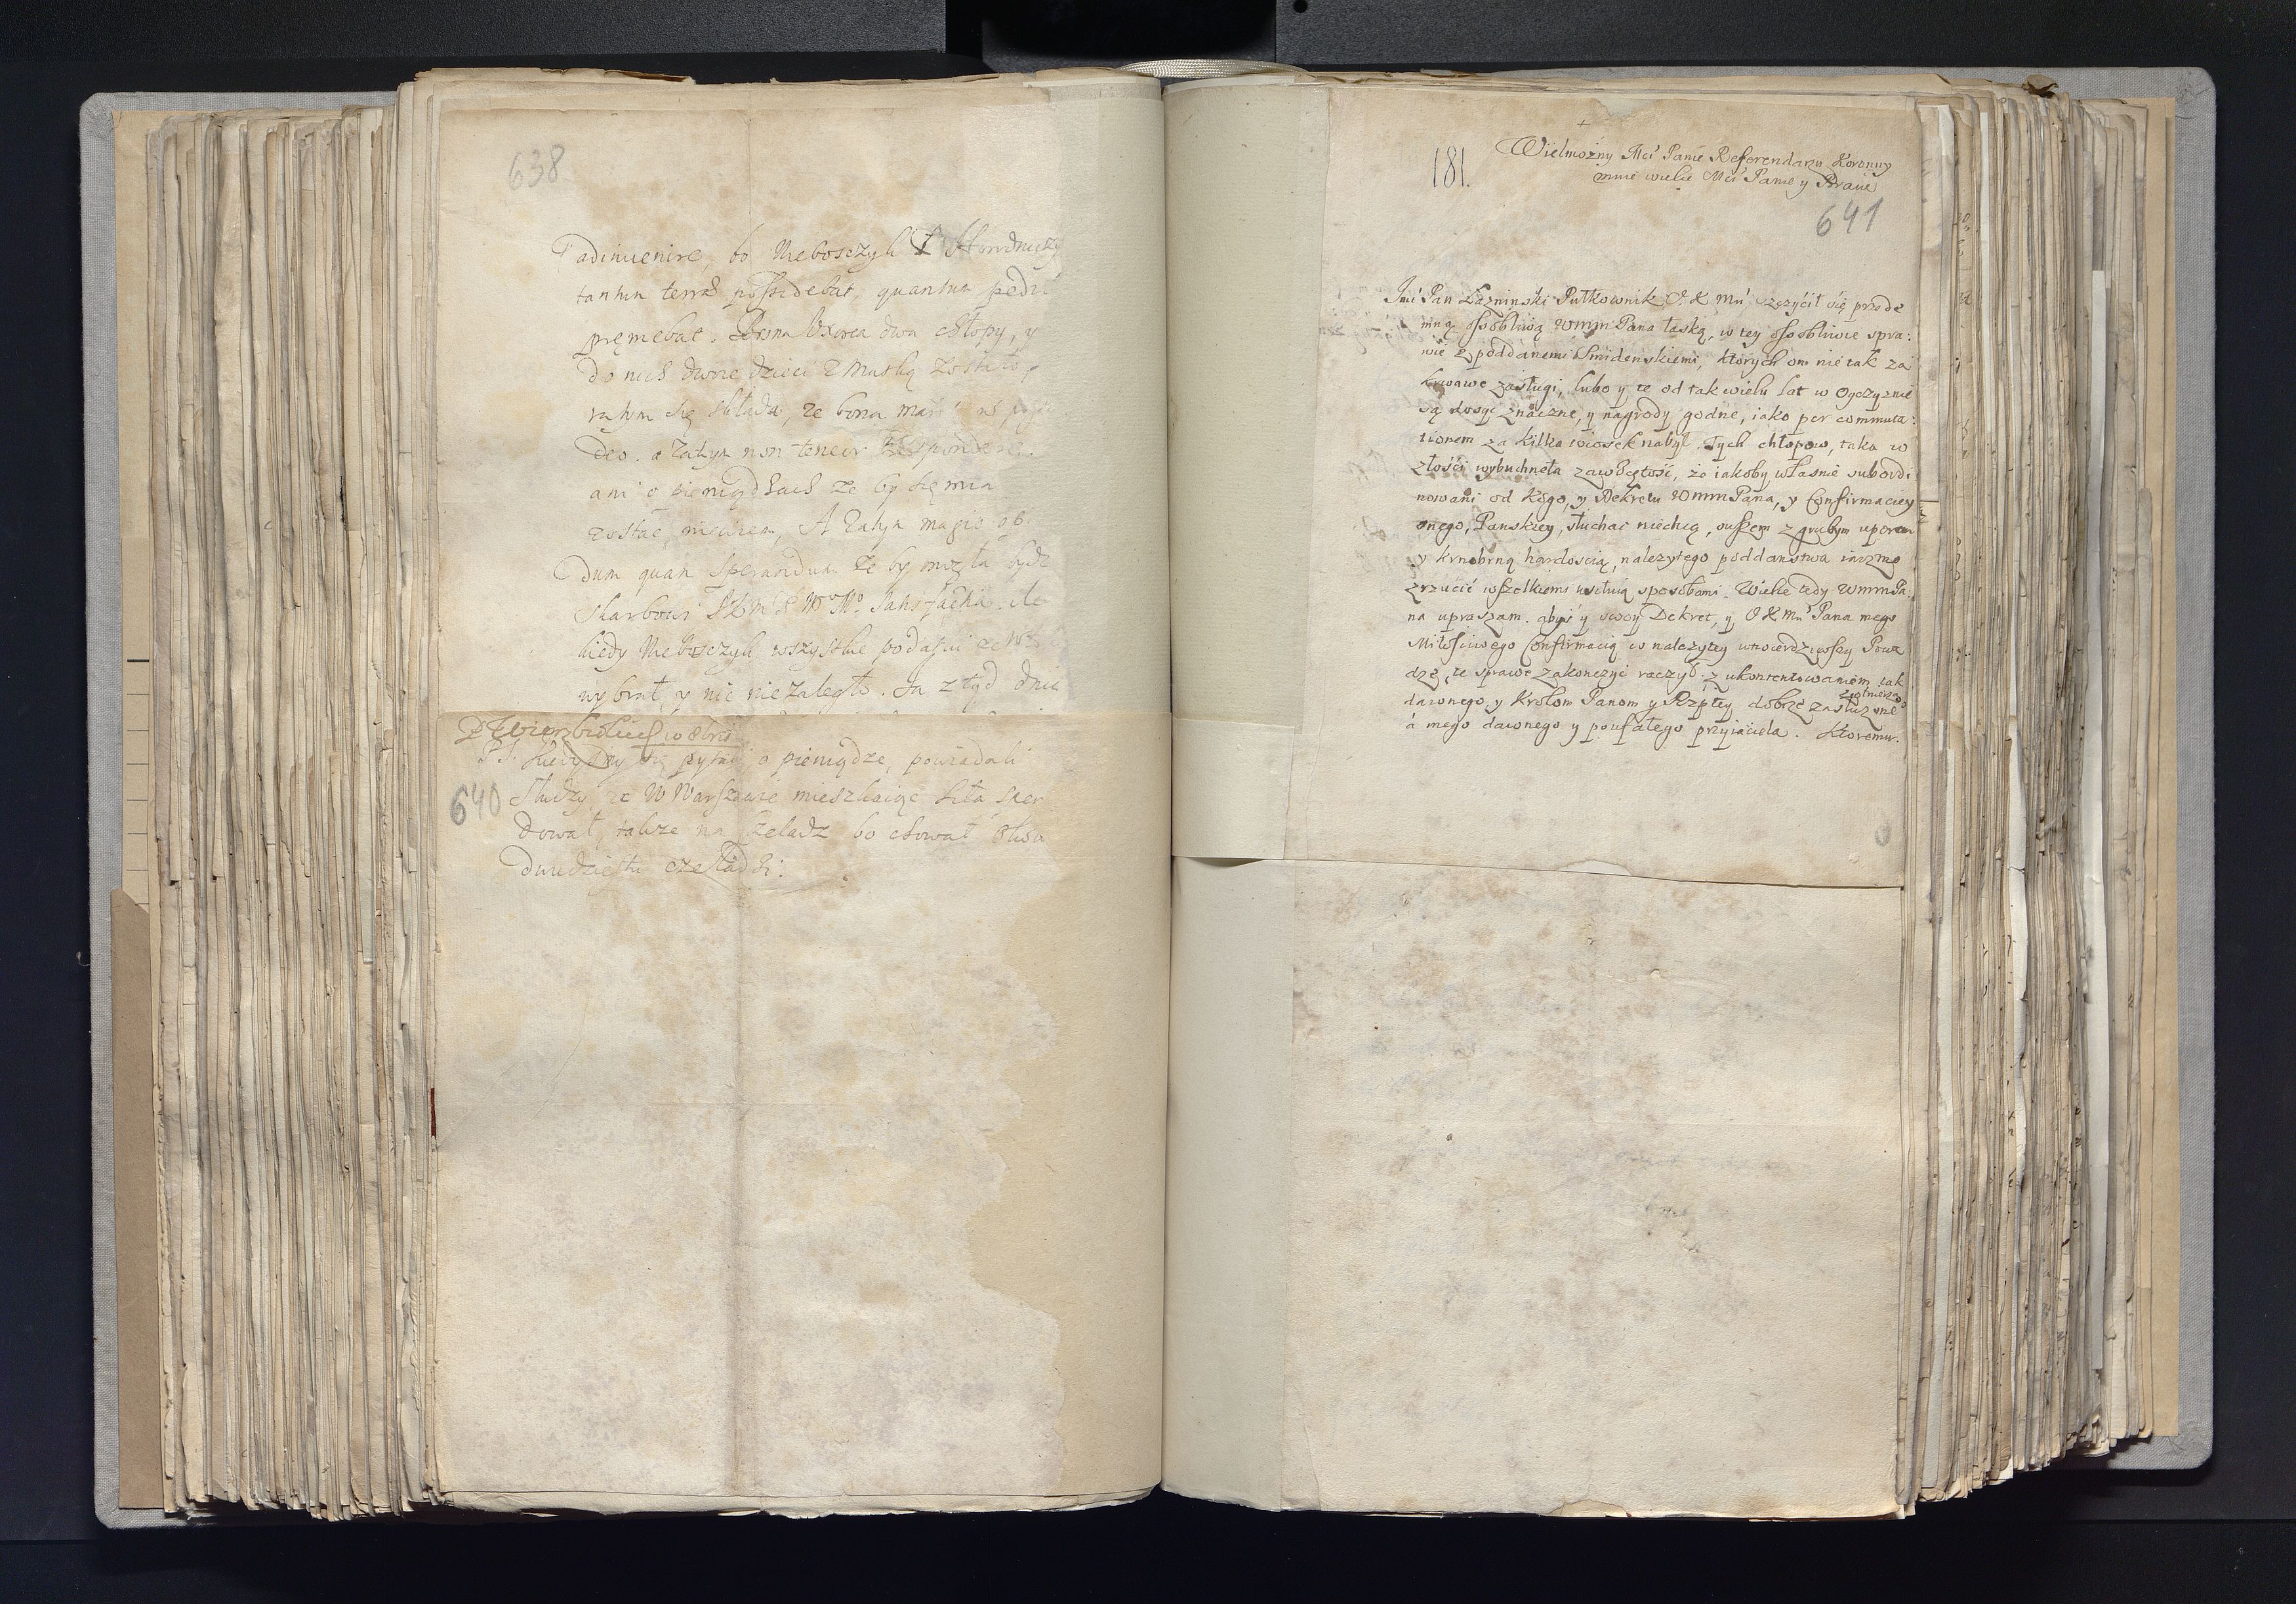 638
adinuenire, bo Nieboszczyk
tantum terras possidebat, quantum pedu
premebat. Bona Uxorea dwa chłopy, y
do nich dwoie dzieci z Matką zostało,
zatym się składa, ze bona
deo. a Zatym non teneor respondere.
ani o pieniądzach ze by się mia
zostać, niewiem, A Zatym magis
dum quam sperandum ze by mogła bydz
Skarbowi
kiedy Nieboszczyk wszystkie podatki
wybrał, y nic nie zaległo. Ja z tyd
640
P.S. kiedym się pytał o pieniądze, powiadali
słudzy, ze W Warszawie mieszkaiąc siła
dował, także na Czeladz bo chował
dwudziestu czeladzi:
181.
Wielmożny Mci Panie Referendarzu Koronny
mnie wielce Mci Panie y Bracie
641
Jmć Pan Łazninski Pułkownik J. K. Mci szczycił się przede
mną osobliwą WmmPana łaską, w tey osobliwie spra:
wie z poddanemi Smidenskiemi, ktorych on nie tak za
krwawe zasługi, lubo y te od tak wielu lat w Oyczyznie
są dosyc znaczne, y nagrody godne, iako per commuta:
tionem za kilka wiosek nabył. Tych chłopow, taka w
złości wybuchneła zawźiętość, że iakoby własnie subordi
nowani od kogo, y Dekretu WmmPana, y Confirmaciey
onego, Panskiey, słuchać niechcą, owszem z grubym uporem
y krnobrną hardoscią, nalezytego poddanstwa iarzmo
zrzucić wszelkiemi usiłuią sposobami. Wielce tedy WmmPa:
na upraszam. abyś y swoy Dekret, y J K Mci Pana mego
Miłościwego Confirmacią w nalezytey utwierdziwszy Powa
dze, te sprawe zakonczyć raczył. z ukontentowaniem tak
dawnego y Krolom Panom y Rzptey dobrze zasłuzone° Zołnierza
á mego dawnego y poufałego przyiaciela. Ktoremu.